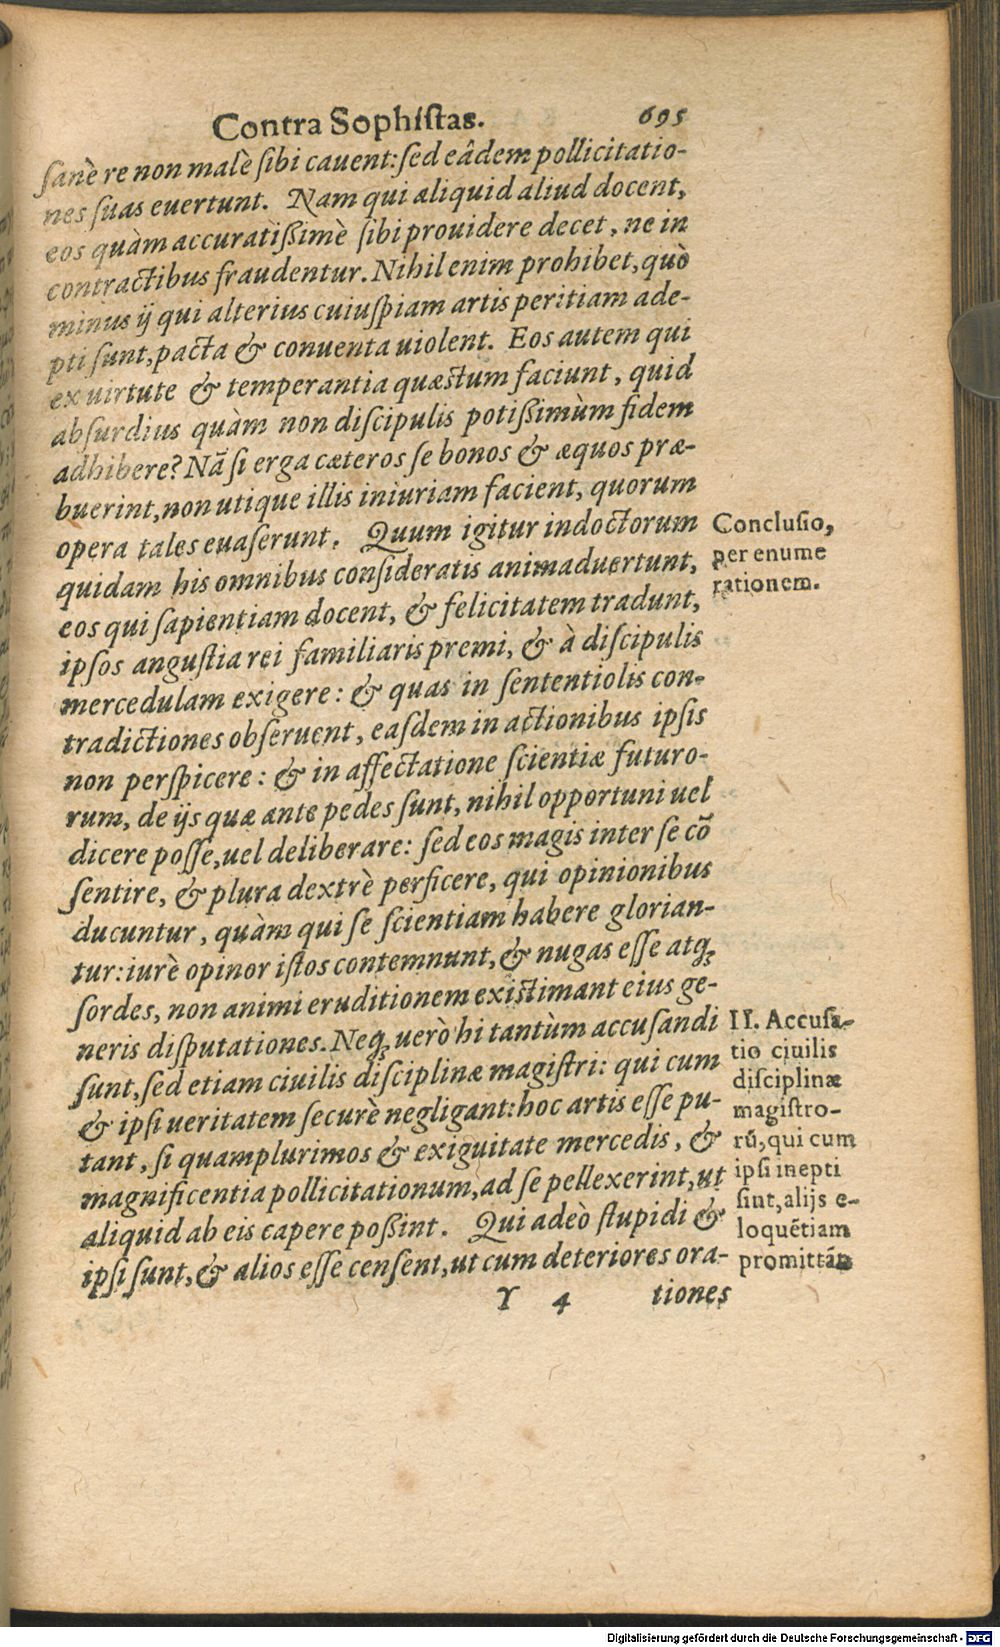 Contra Sophistas. 695
sanè re non malè sibi cauent: sed eâdem pollicitatio-
nes suas euertunt. Nam qui aliquid aliud docent,
eos quàm accuratißimè sibi prouidere decet, ne in
contractibus fraudentur. Nihil enim prohibet, quò
minus ij qui alterius cuiuspiam artis peritiam ade-
pti sunt, pacta & conuenta uiolent. Eos autem qui
ex uirtute & temperantia quæstum faciunt, quid
absurdius quàm non discipulis potißimùm fidem
adhibere? Nã si erga cæteros se bonos & æquos præ-
buerint, non utique illis iniuriam facient, quorum
opera tales euaserunt. Quum igitur indoctorum
quidam his omnibus consideratis animaduertunt,
eos qui sapientiam docent, & felicitatem tradunt,
ipsos angustia rei familiaris premi, & à discipulis
mercedulam exigere: & quas in sententiolis con-
tradictiones obseruent, easdem in actionibus ipsis
non perspicere: & in affectatione scientiæ futuro-
rum, de ijs quæ ante pedes sunt, nihil opportuni uel
dicere posse, uel deliberare: sed eos magis inter se cõ
sentire, & plura dextrè perficere, qui opinionibus
ducuntur, quàm qui se scientiam habere glorian-
tur: iurè opinor istos contemnunt, & nugas esse atq;
sordes, non animi eruditionem existimant eius ge-
neris disputationes. Neq; uerò hi tantùm accusandi
sunt, sed etiam ciuilis disciplinæ magistri: qui cum
& ipsi ueritatem securè negligant: hoc artis esse pu-
tant, si quamplurimos & exiguitate mercedis, &
magnificentia pollicitationum, ad se pellexerint, ut
aliquid ab eis capere poßint. Qui adeò stupidi &
ipsi sunt, & alios esse censent, ut cum deteriores ora-
Y 4 tiones
Conclusio,
per enume
rationem.
II. Accusa-
tio ciuilis
disciplinæ
magistro-
rũ, qui cum
ipsi inepti
sint, alijs e-
loquẽtiam
promittãt
Digitalisierung gefördert durch die Deutsche Forschungsgemeinschaft - DFG